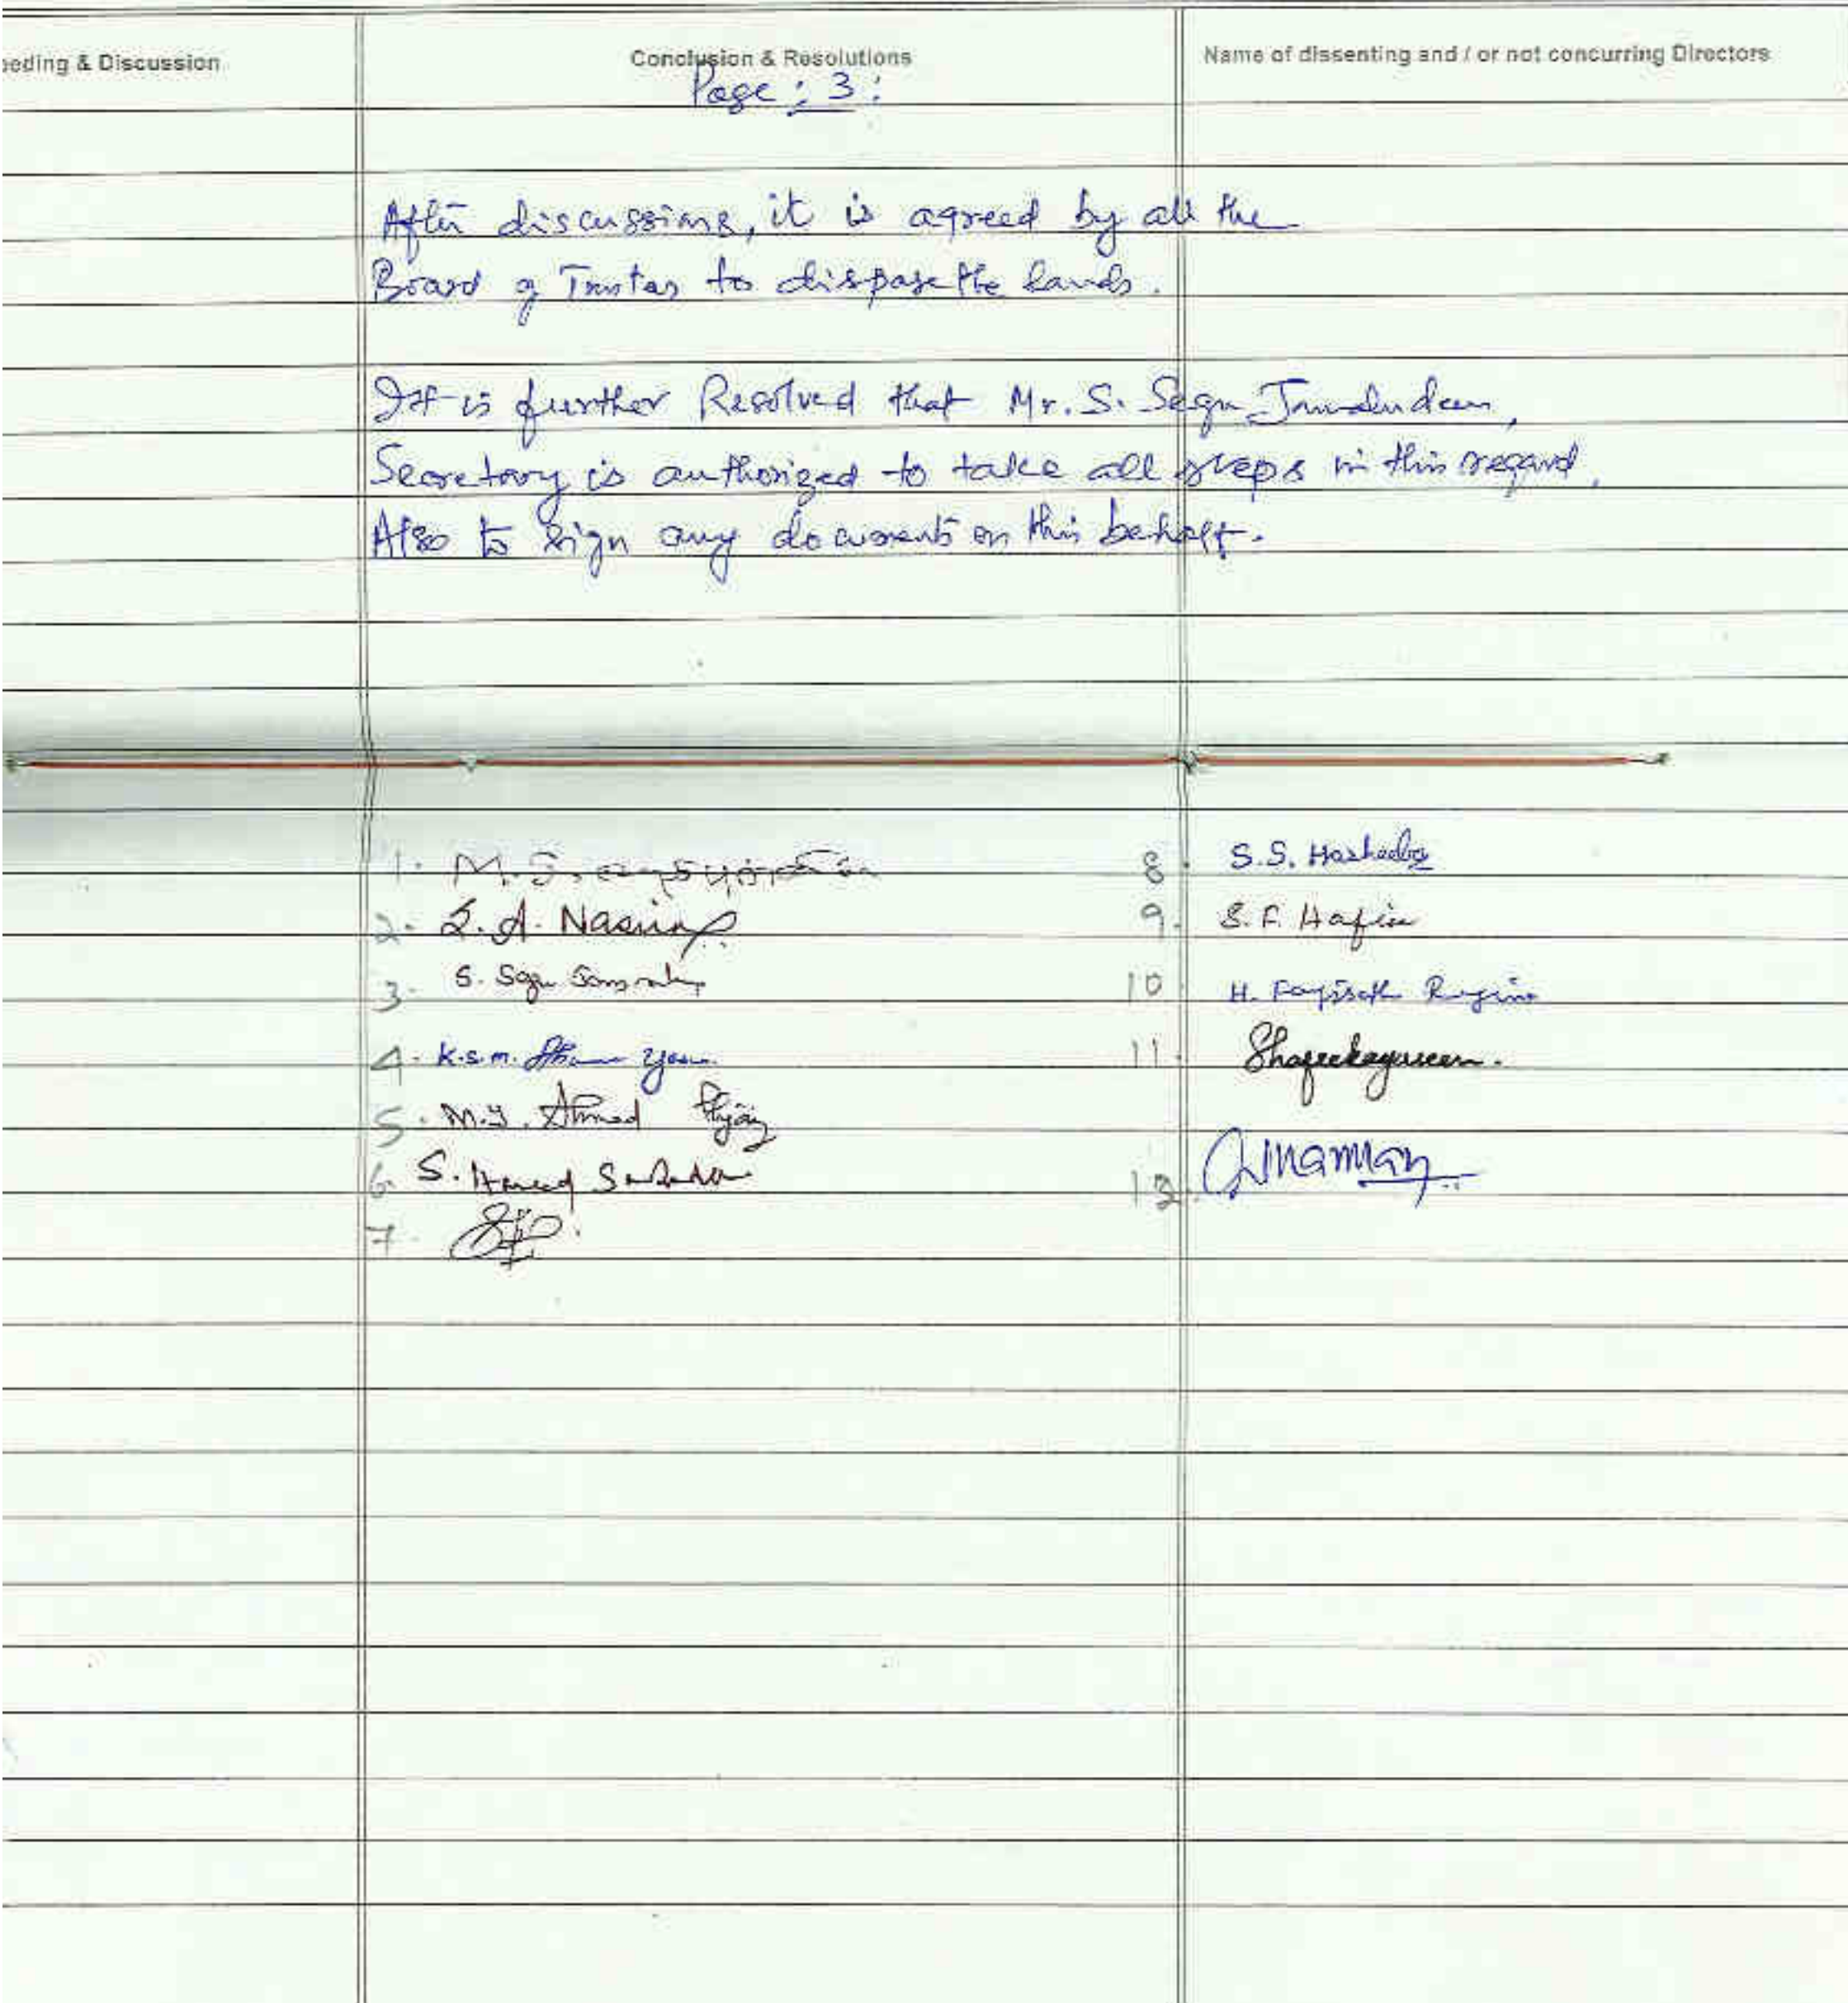 eeding & Discussion
Conclusion & Resolutions
Name of dissenting and / or not concurring Directors
Page : 3 :
After discussions, it is agreed by all the
Board of Trustees to dispose the lands.
It is further Resolved that Mr. S. Segu Jamaludeen,
Secretary is authorized to take all steps in this regard,
Also to sign any documents on this behalf.
1. M.J.
2. S.A. Nasria
3. S. Segu
4. K.S.M.
5. M.Y. Ahmed
6. S. Hameed
7.
8. S.S. Hasheeba
9. S.F.
10 H. Regina
11.
12.